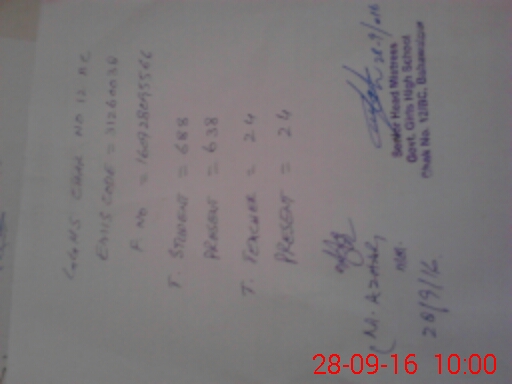 GGHS CHAK NO 12 BC
EMIS CODE = 31260036
P NO = 160928095566
T. STUDENT = 688
PRESENT = 638
T. TEACHER = 24
PRESENT = 24
(M. AZHAR)
28/9/16
28-9/016
Senior Head Mistress
Govt. Girls High School
Chak No. 12/BC, Bahawalpur
28-09-16 10:00